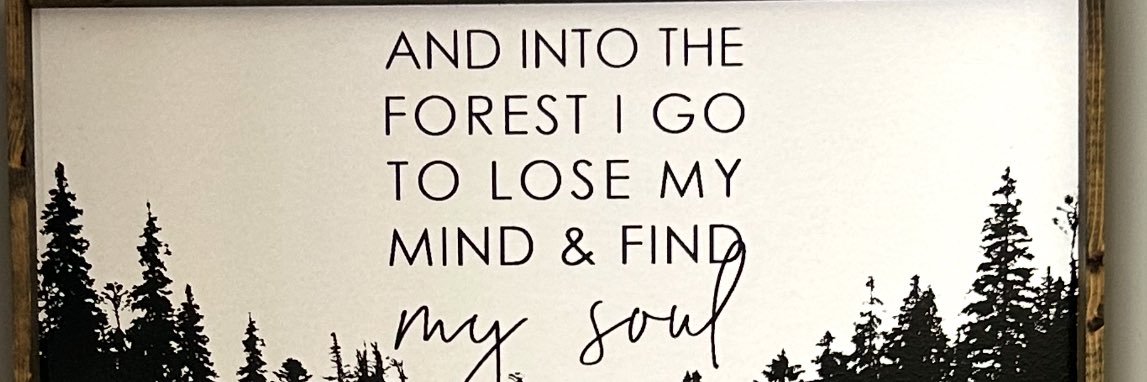 AND INTO THE
FOREST I GO
TO LOSE MY
MIND & FIND
my soul